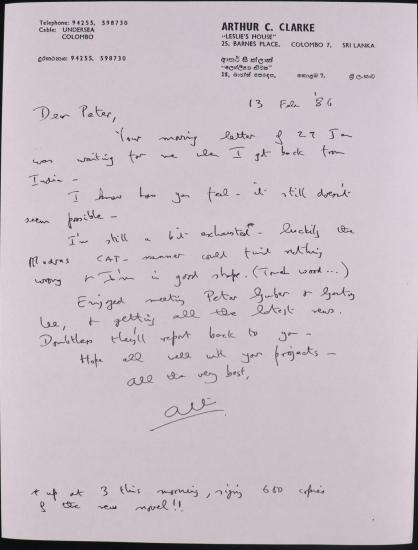 Telephone: 94255, 598730
Cable: UNDERSEA
COLOMBO
දුරකථනය: 94255, 598730
ARTHUR C. CLARKE
"LESLIE'S HOUSE"
25, BARNES PLACE, COLOMBO 7, SRI LANKA
ආතර් සී ක්ලාක්
"ලෙස්ලිගෙ නිවස"
25, බාන්ස් පෙදෙස, කොළඹ 7, ශ්‍රී ලංකාව
13 Feb '86
Dear Peter,
Your moving letter of 27 Jan
was waiting for me when I got back from
India -
I know how you feel - it still doesn't
seem possible -
I'm still a bit exhausted* - luckily the
Madras CAT-scanner could find nothing
wrong & I'm in good shape. (Touch wood...)
Enjoyed meeting Peter Guber &
Lee, & getting all the latest news.
Doubtless they'll report back to you -
Hope all well with your projects -
All the very best,
* up at 3 this morning, signing 600 copies
of the new novel!!